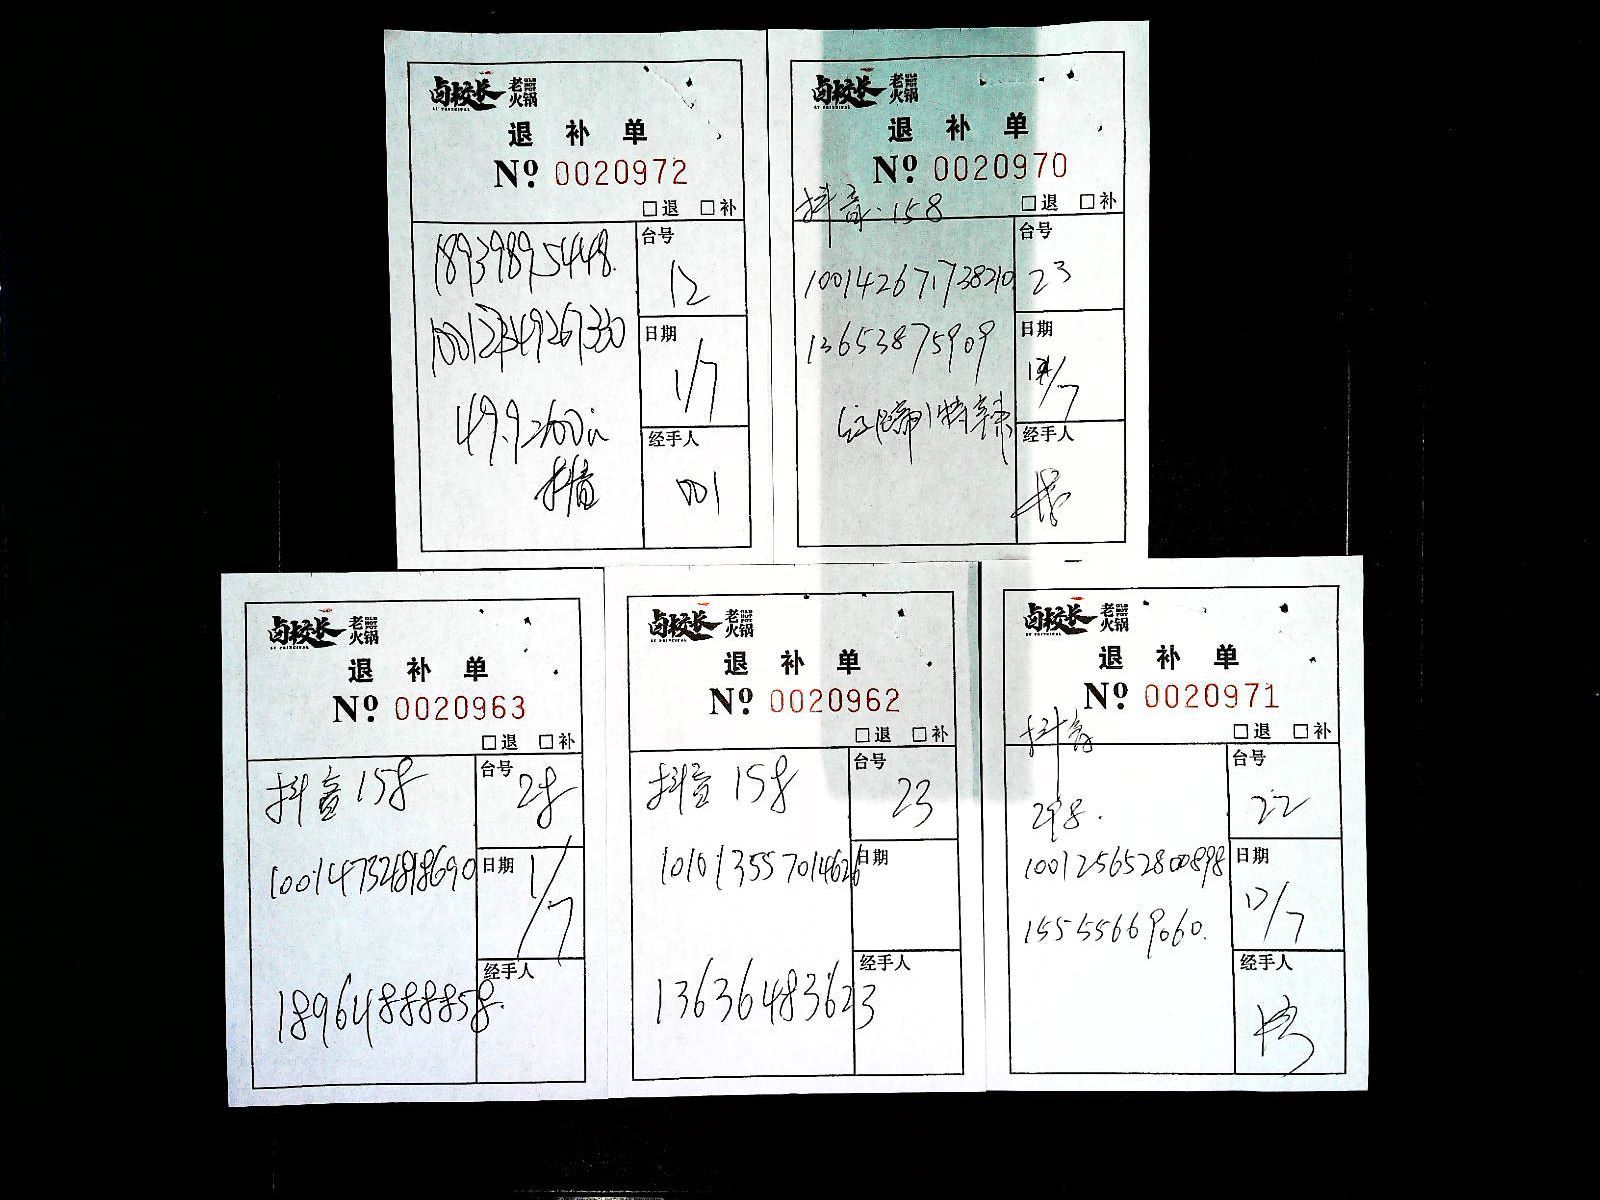 卤校长 老火锅
退 补 单
№ 0020972
□退 □补
18939895448.
台号
12
日期
1/7
49.9
抖音
经手人
001
卤校长 老火锅
退 补 单
№ 0020970
抖音.158
□退 □补
台号
23
100142671738210
13653875909
日期
经手人
卤校长 老火锅
退 补 单
№ 0020963
□退 □补
抖音158
台号
28
日期
1/7
18964888858.
经手人
卤校长 老火锅
退 补 单
№ 0020962
□退 □补
抖音158
台号
23
101013557014626
日期
13636483623
经手人
卤校长 老火锅
退 补 单
№ 0020971
抖音
□退 □补
298.
台号
22
100125652800898
日期
15555669060.
经手人